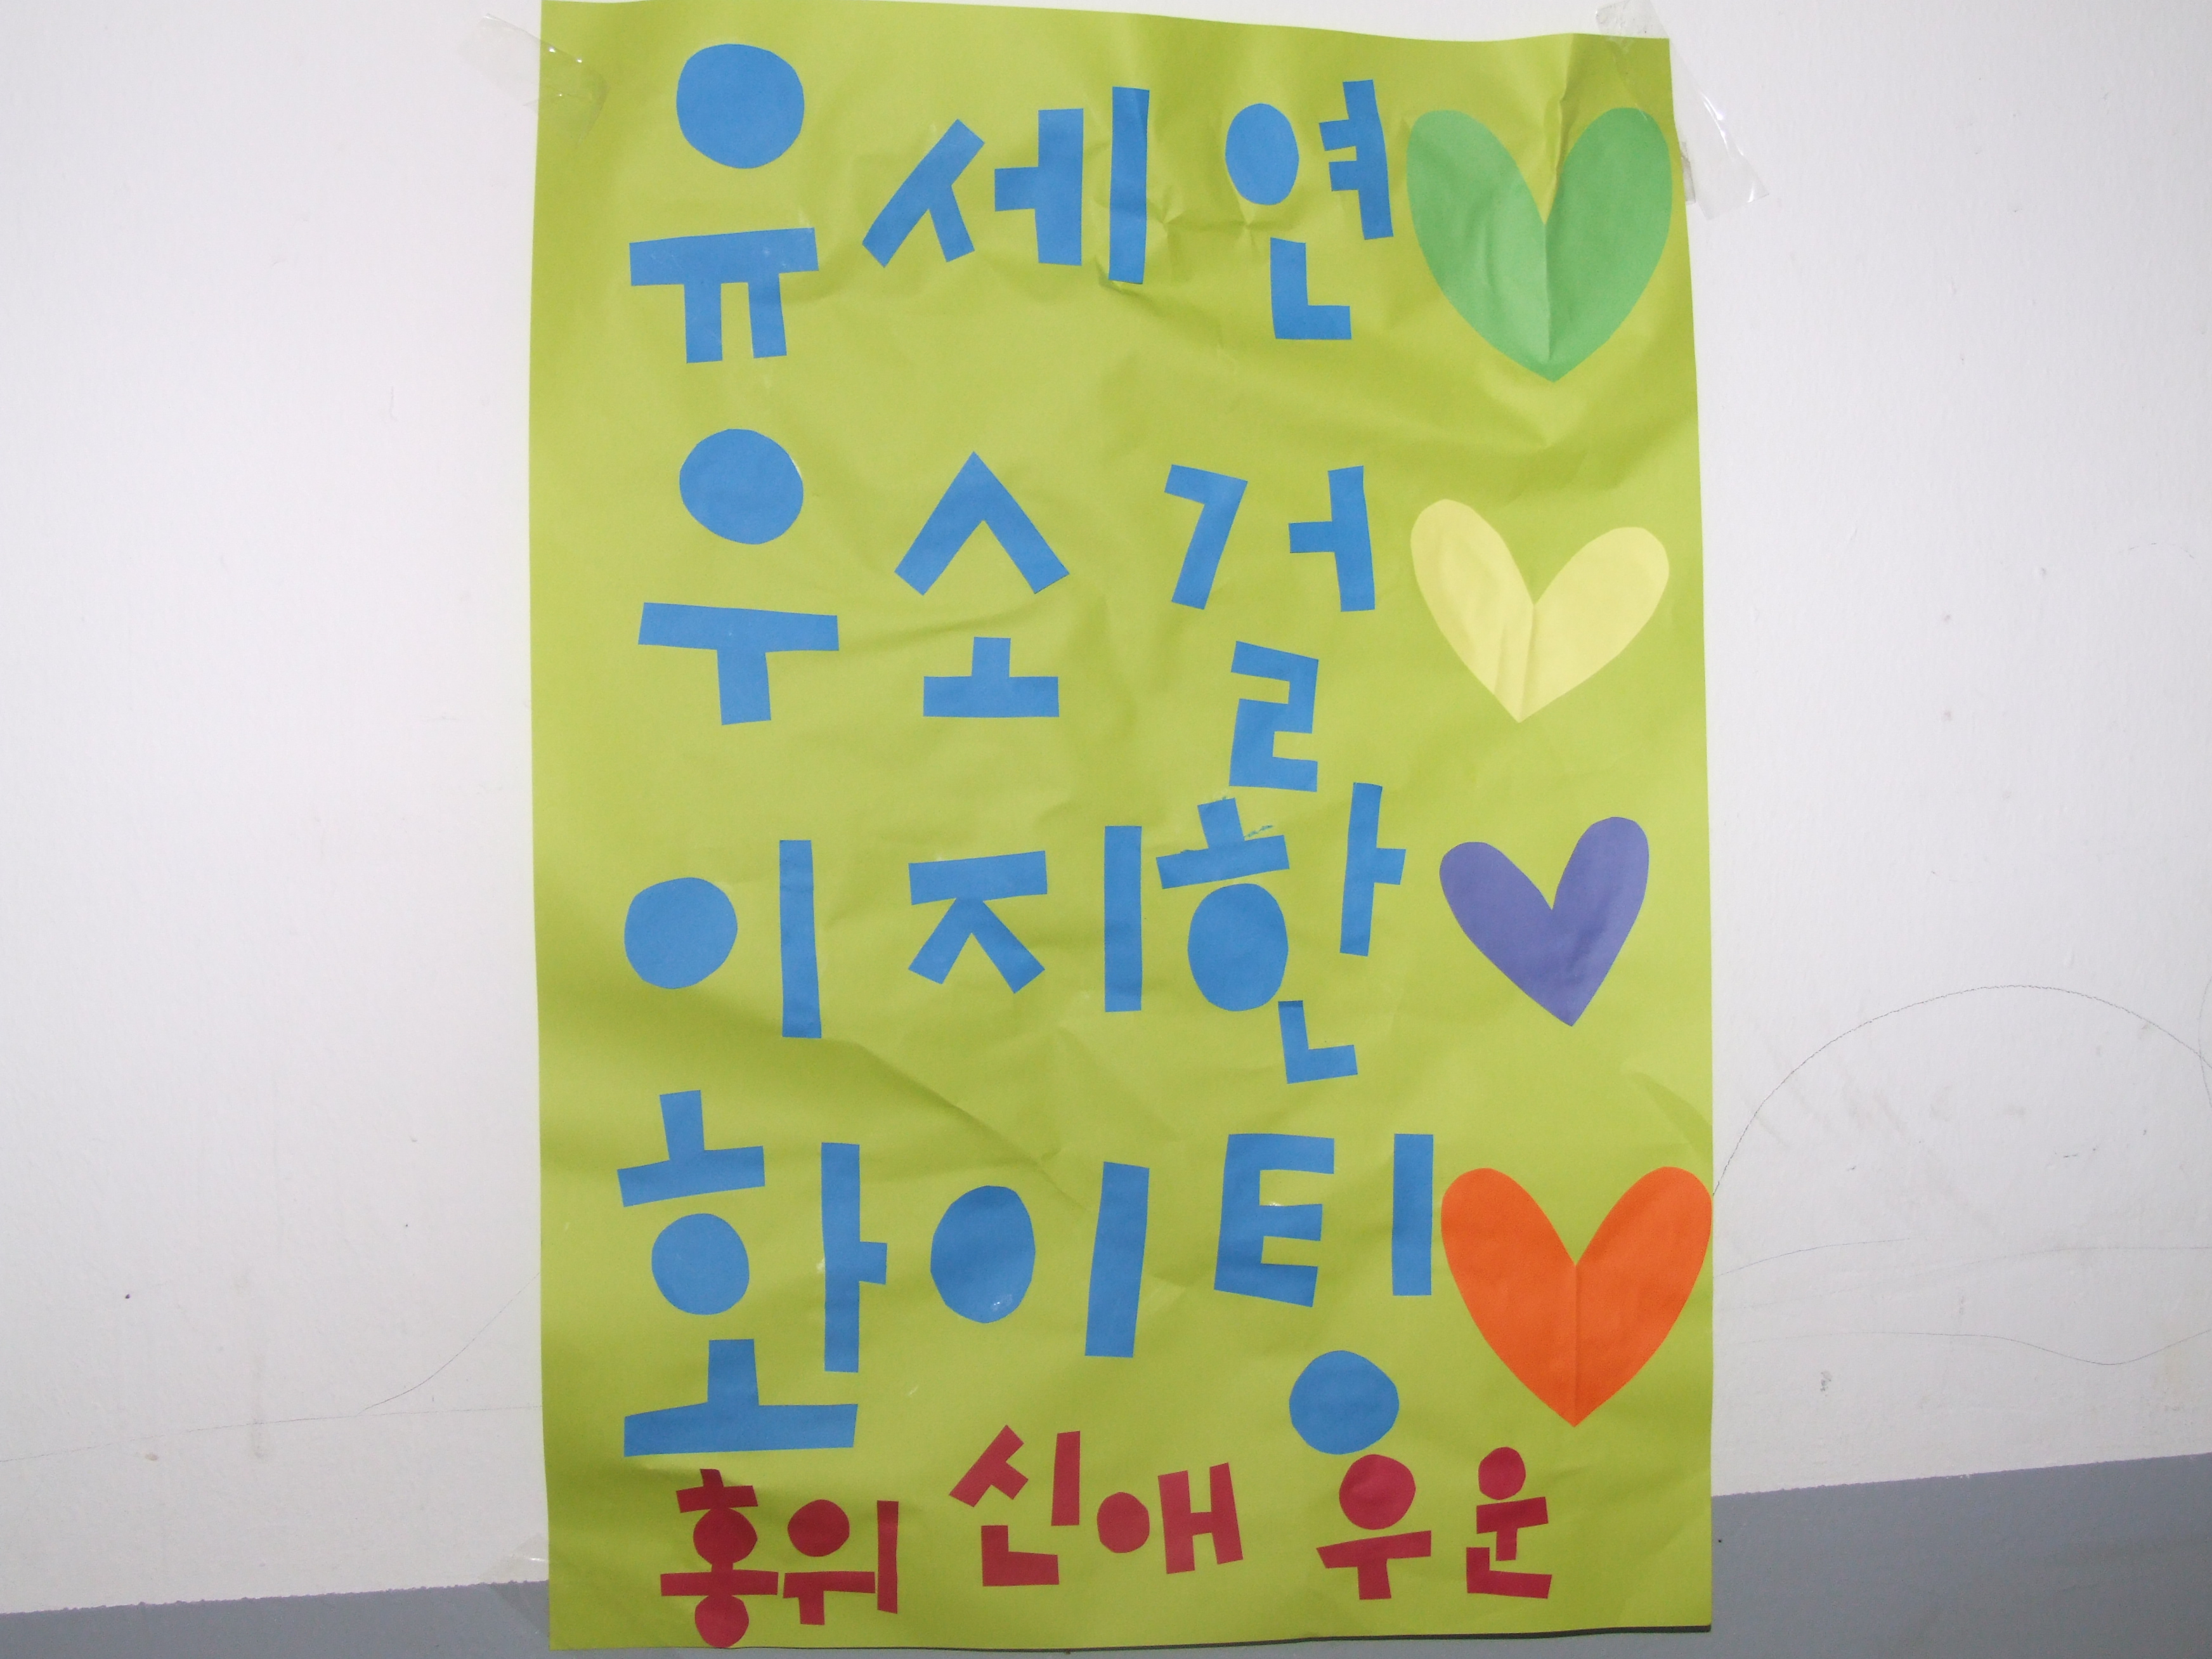 유세연
우소걸
이지한
화이팅
홍위 신애 우운